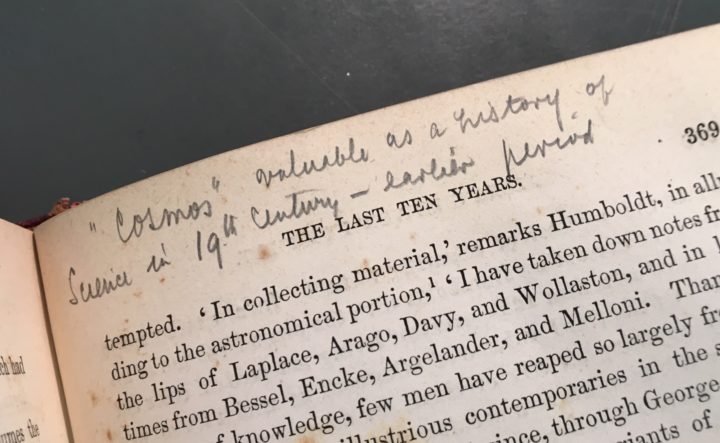 "Cosmos" valuable as a history of
Science in 19th Century – earlier period
369
THE LAST TEN YEARS.
tempted. 'In collecting material,' remarks Humboldt, in allu
ding to the astronomical portion,¹ 'I have taken down notes fr
the lips of Laplace, Arago, Davy, and Wollaston, and in l
times from Bessel, Encke, Argelander, and Melloni. Than
of knowledge, few men have reaped so largely fr
illustrious contemporaries in the s
ince, through George
iants of
ch had
umes the